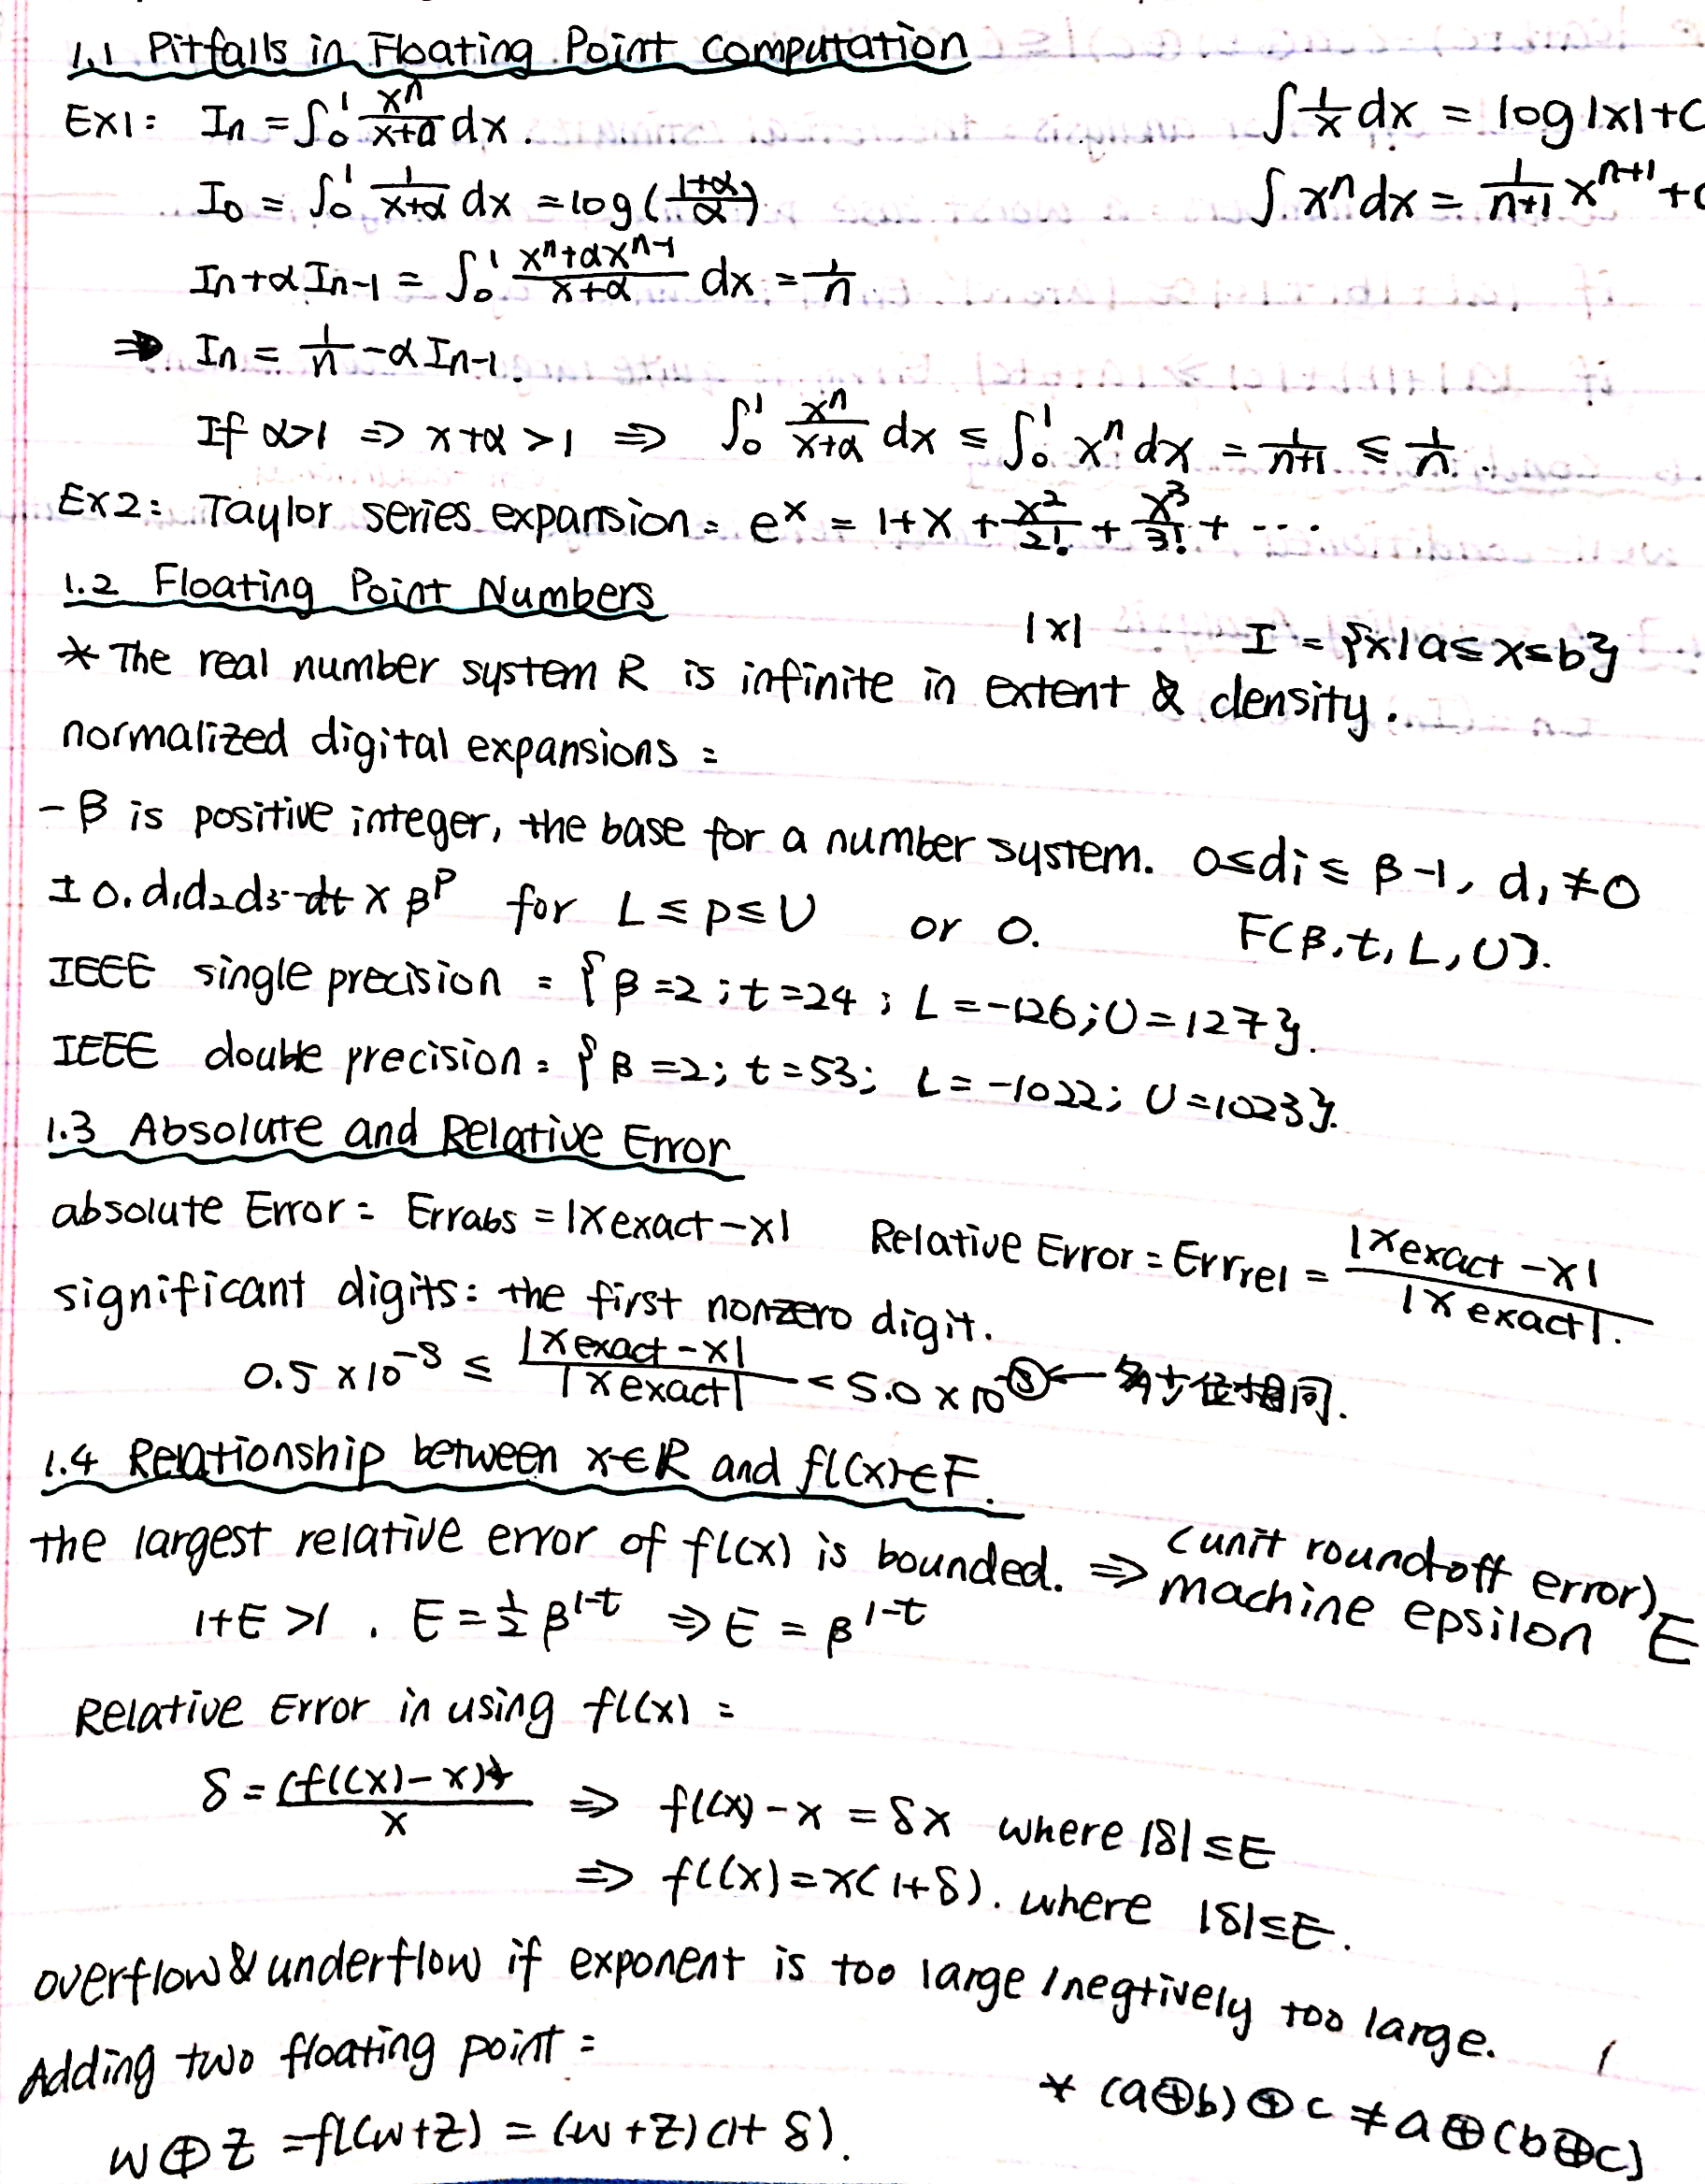 1.1 Pitfalls in Floating Point Computation
Ex1: In = ∫₀¹ xⁿ/(x+α) dx.
∫ 1/x dx = log|x|+C
I₀ = ∫₀¹ 1/(x+α) dx = log((1+α)/α)
∫ xⁿ dx = 1/(n+1) xⁿ⁺¹ + C
In+αIn-1 = ∫₀¹ (xⁿ+αxⁿ⁻¹)/(x+α) dx = 1/n
⇒ In = 1/n - αIn-1.
If α>1 ⇒ x+α>1 ⇒ ∫₀¹ xⁿ/(x+α) dx ≤ ∫₀¹ xⁿ dx = 1/(n+1) ≤ 1/n.
Ex2: Taylor series expansion: eˣ = 1+x+x²/2!+x³/3!+ ...
1.2 Floating Point Numbers
|x| I = {x|a≤x≤b}
* The real number system R is infinite in extent & density.
normalized digital expansions:
- β is positive integer, the base for a number system. 0≤di≤β-1, d₁≠0
± 0.d₁d₂d₃...dt × βᵖ for L≤p≤U or 0. F(β,t,L,U).
IEEE single precision = {β=2; t=24; L=-126; U=127}.
IEEE double precision = {β=2; t=53; L=-1022; U=1023}.
1.3 Absolute and Relative Error
absolute Error = Errabs = |Xexact-X| Relative Error = Errrel = |Xexact-X|/|Xexact|.
significant digits: the first nonzero digit.
0.5×10⁻ˢ ≤ |Xexact-X|/|Xexact| < 5.0×10⁻ˢ ← 多少位相同.
1.4 Relationship between x∈R and fl(x)∈F.
the largest relative error of fl(x) is bounded. ⇒ (unit roundoff error)
machine epsilon E
1+E>1. E=½β¹⁻ᵗ ⇒ E=β¹⁻ᵗ
Relative Error in using fl(x) =
δ = (fl(x)-x)/x ⇒ fl(x)-x = δx where |δ|≤E
⇒ fl(x)=x(1+δ). where |δ|≤E.
overflow & underflow if exponent is too large / negtively too large.
Adding two floating point =
* (a⊕b)⊕c ≠ a⊕(b⊕c)
w⊕z = fl(w+z) = (w+z)(1+δ).